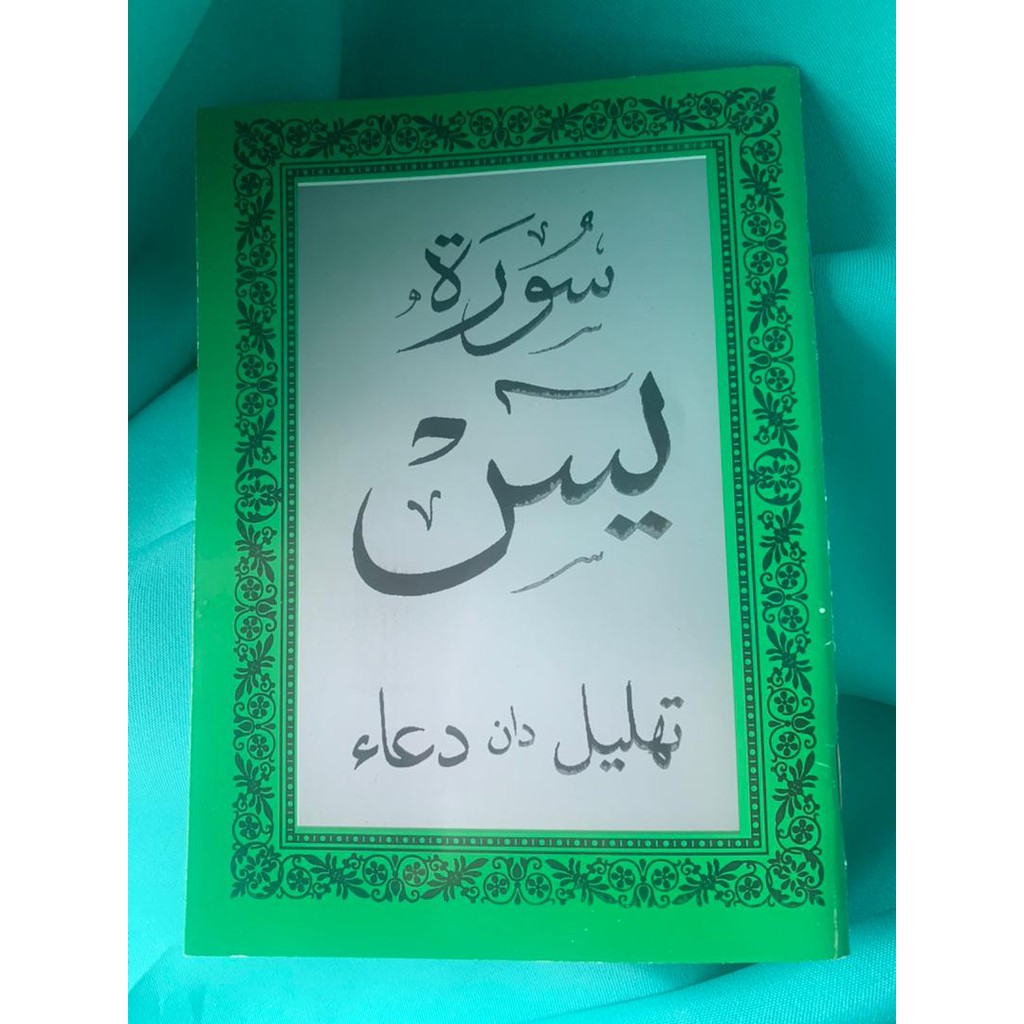 سُوْرَةُ
يٰسٓ
تهليل دان دعاء